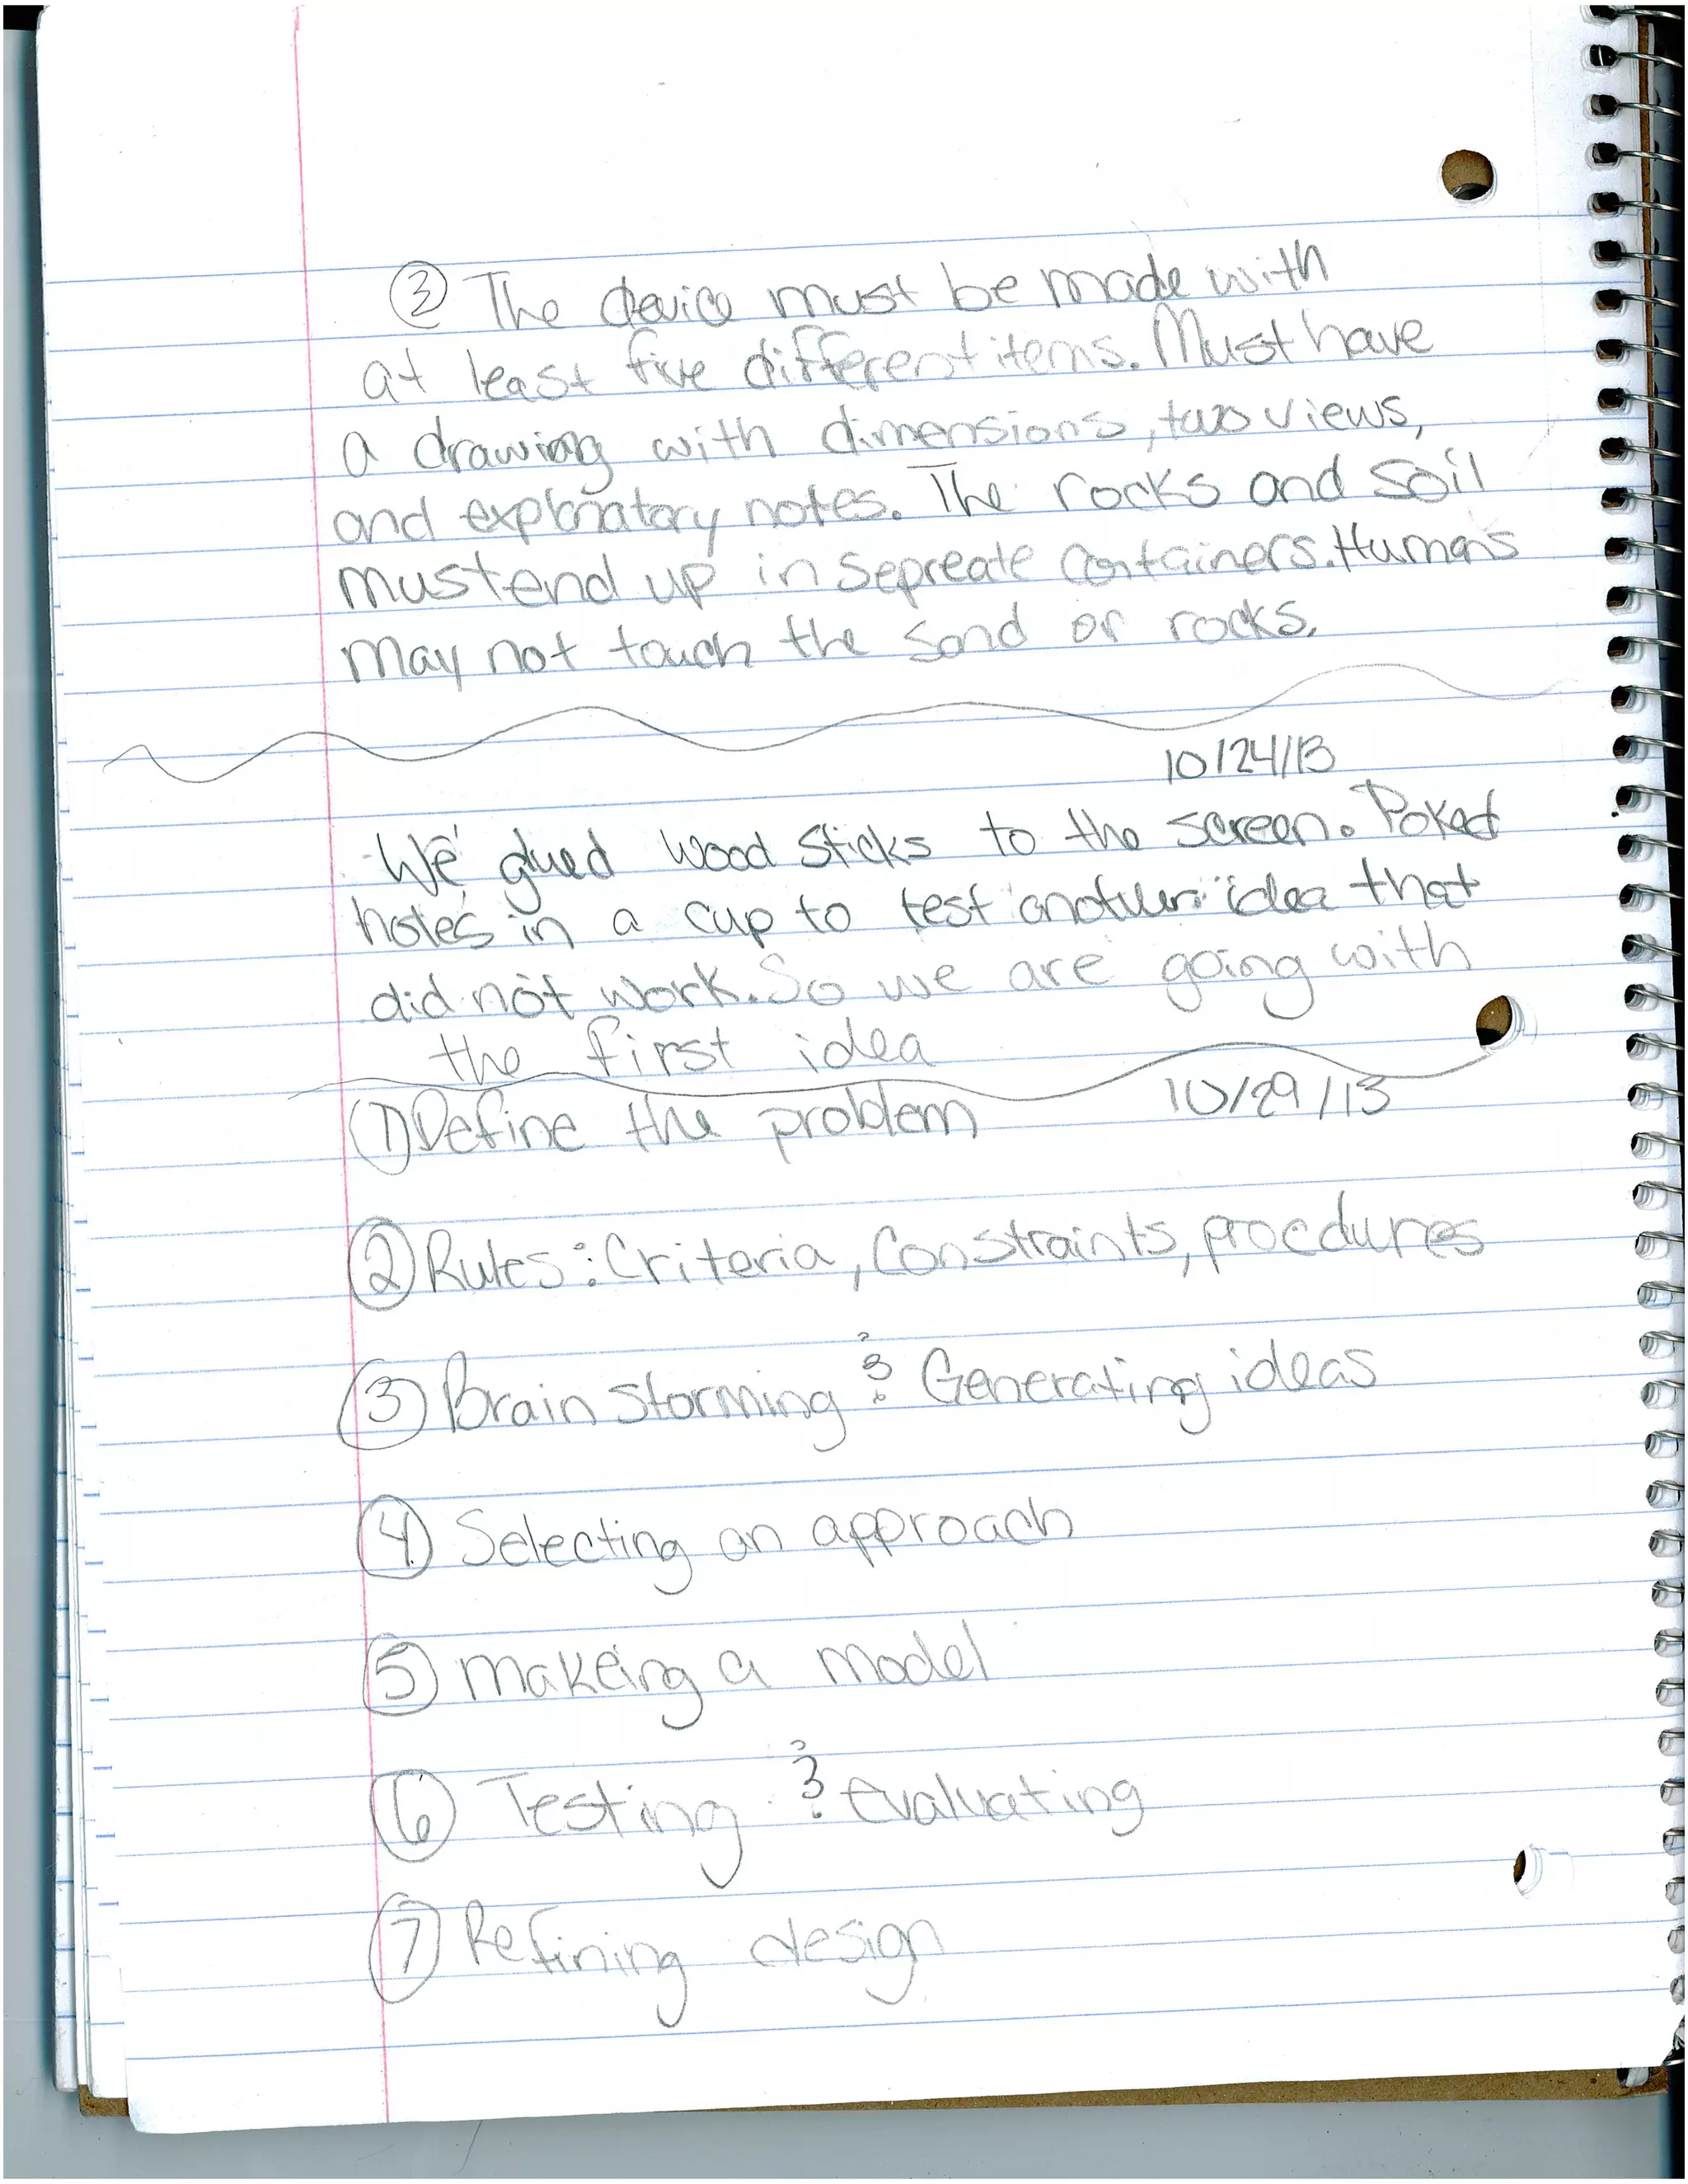 ② The device must be made with
at least five different items. Must have
a drawing with dimensions, two views,
and explanatory notes. The rocks and soil
must end up in sepreate containers. Humans
may not touch the sand or rocks.
10/24/13
We glued wood sticks to the screen. Poked
holes in a cup to test another idea that
did not work. So we are going with
the first idea
① Define the problem 10/29/13
② Rules: Criteria, Constraints, procedures
③ Brain storming & Generating ideas
④ Selecting an approach
⑤ Making a model
⑥ Testing & evaluating
⑦ Refining design